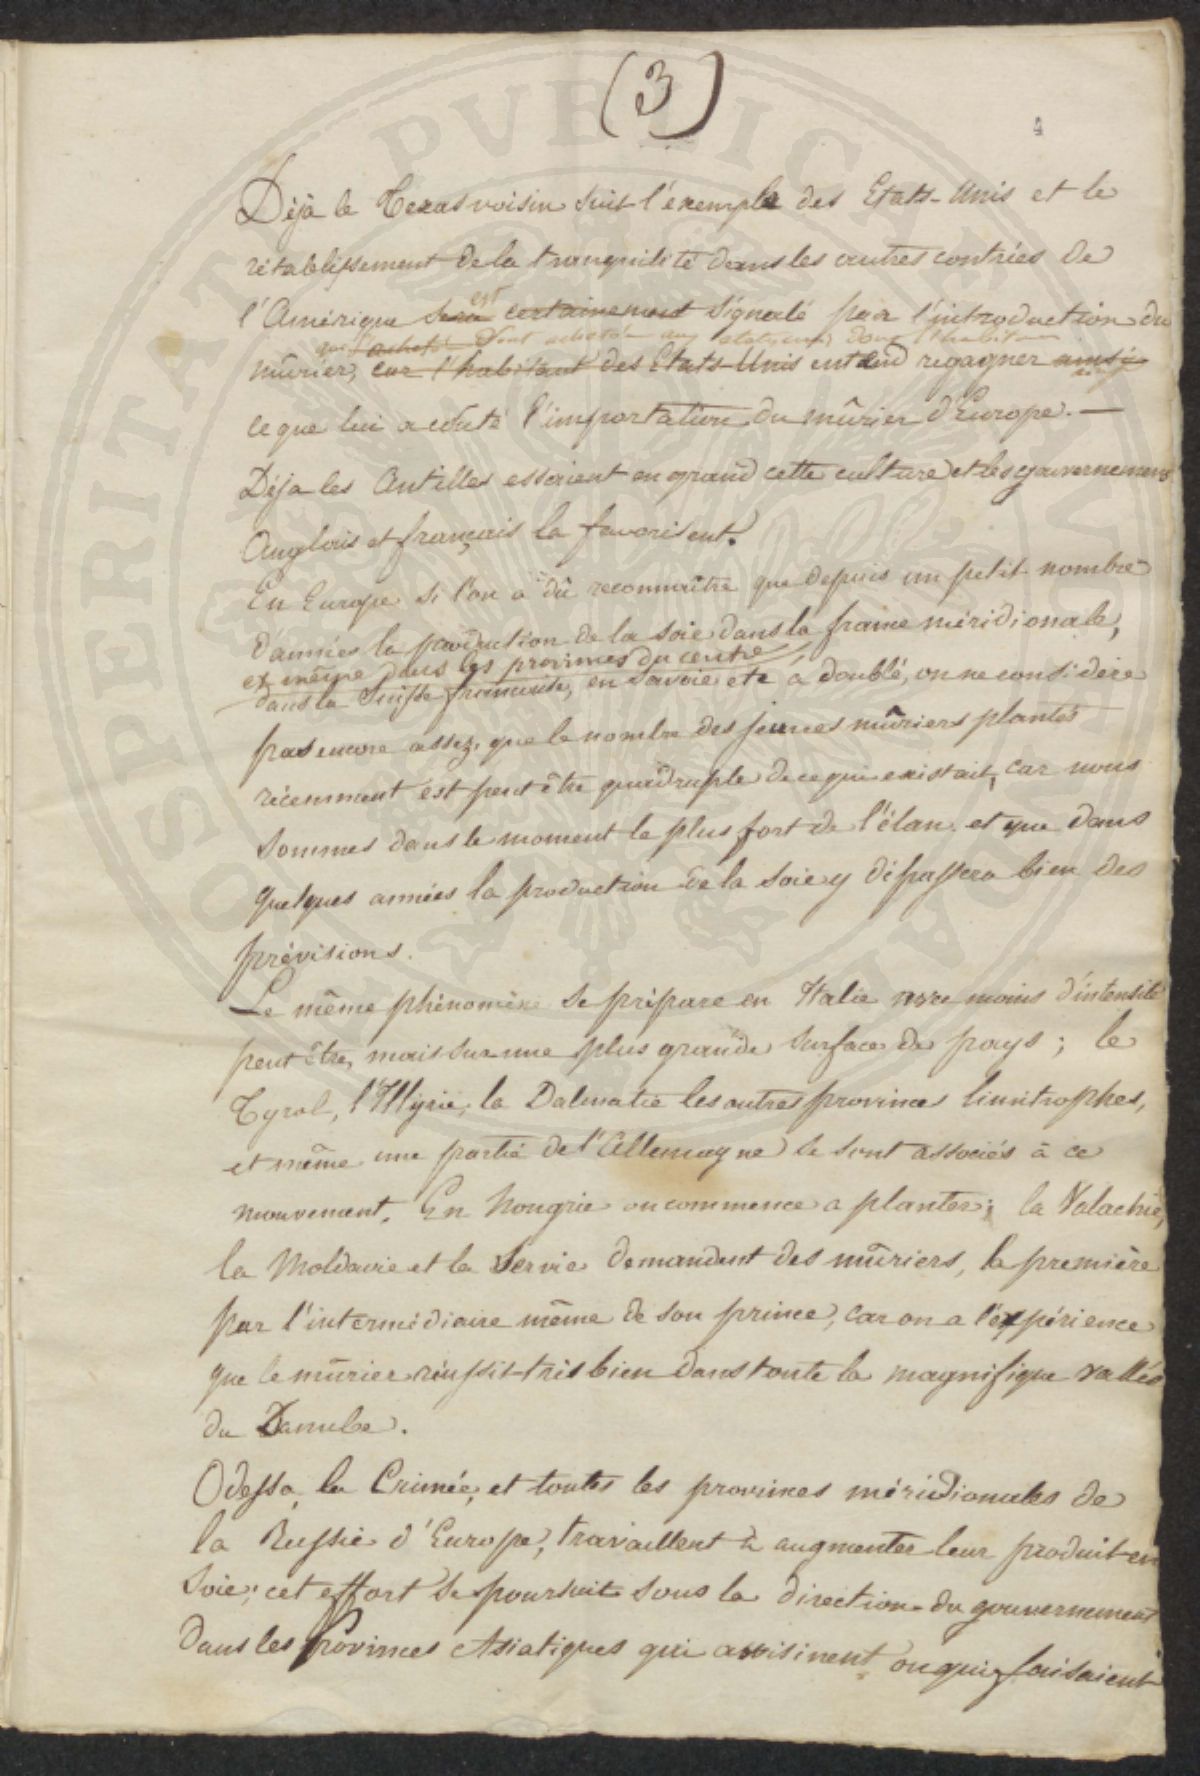 (3)
4
Déjà le Texas voisin suit l'exemple des Etats-Unis et le
rétablissement de la tranquilité dans les autres contrées de
est
l'Amérique sera certainement signalé par l'introduction du
mûrier, car l'habitant des Etats-Unis entend regagner ainsi
ce que lui a coûté l'importation du mûrier d'Europe. —
Déja les Antilles essaient en grand cette culture et les gouvernemens
Anglais et français la favorisent.
En Europe si l'on a dû reconnaître que depuis un petit nombre
d'années la production de la soie dans la france méridionale,
et même dans les provinces du centre
dans la Suisse francaise, en Savoie etc a doublé, on ne considère
pas encore assez, que le nombre des jeunes mûriers plantés
récemment est peut être quadruple de ce qui existait, car nous
sommes dans le moment le plus fort de l'élan, et que dans
quelques années la production de la soie y dépassera bien des
prévisions.
Le même phénomène se prépare en Italie avec moins d'intensité
peut être, mais sur une plus grande surface de pays; le
Tyrol, l'Illyrie, la Dalmatie les autres provinces limitrophes,
et même une partie de l'Allemagne se sont associés à ce
mouvement. En hongrie on commence a planter; la Valachie,
la Moldavie et la Servie demandent des mûriers, la première
par l'intermédiaire même de son prince, car on a l'expérience
que le mûrier réussit très bien dans toute la magnifique vallée
du Danube.
Odessa, la Crimée, et toutes les provinces méridionales de
la Russie d'Europe, travaillent à augmenter leur produit en
soie; cet effort se poursuit sous la direction du gouvernement
dans les Provinces Asiatiques qui avoisinent ou qui faisaient